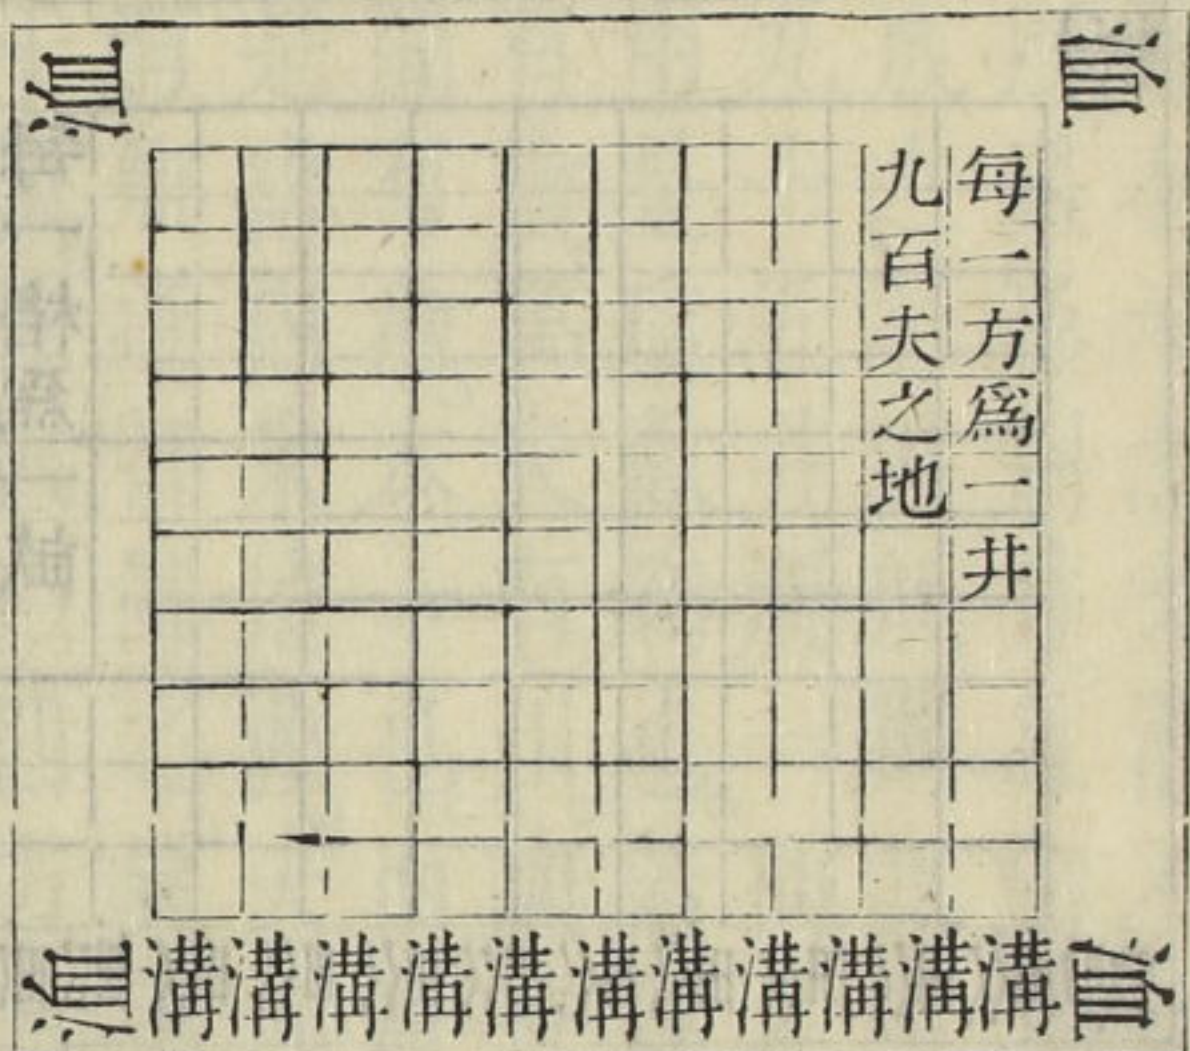 洫
每一方爲一井
九百夫之地
洫
洫
溝溝溝溝溝溝溝溝溝溝溝
洫